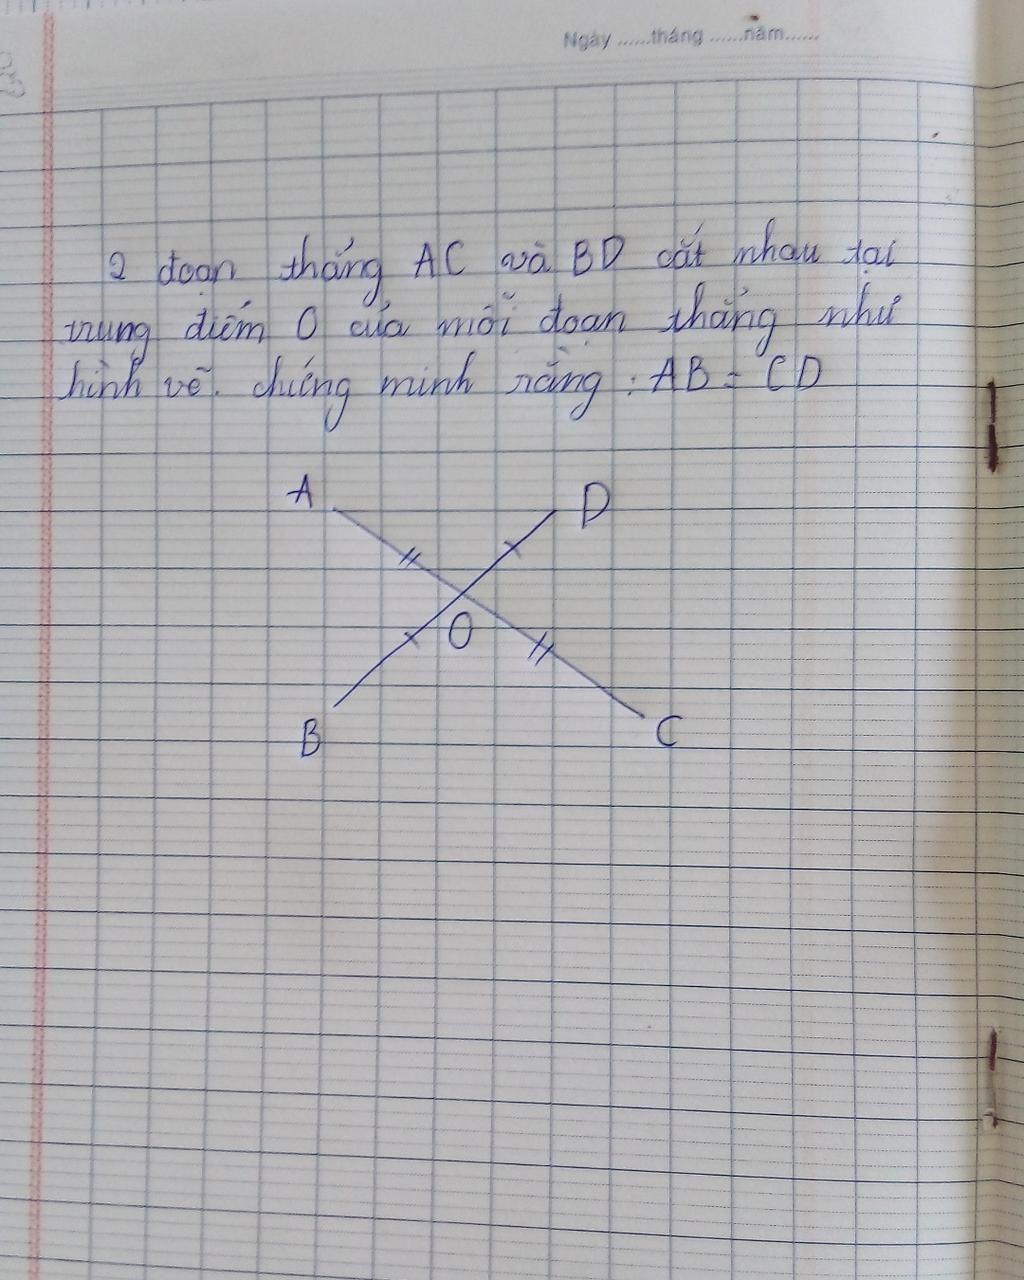 Ngày ......tháng ......năm......
2 đoạn thẳng AC và BD cắt nhau tại
trung điểm O của mỗi đoạn thẳng như
hình vẽ. chứng minh rằng : AB = CD
A
D
O
B
C